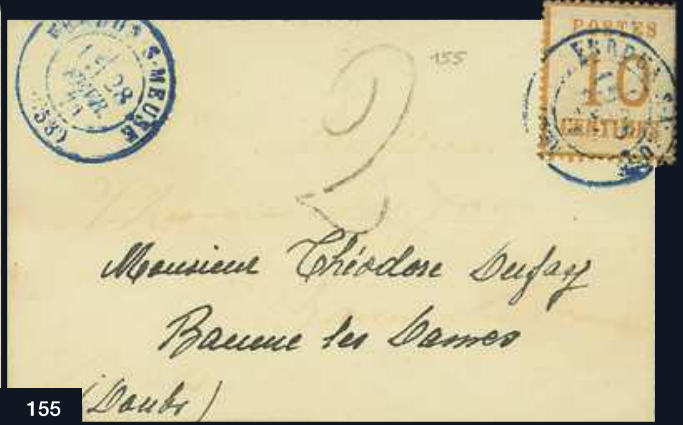 VERDUN S-MEUSE
28
FEVR.
(53)
155
POSTES
10
CENTIMES
VERDUN S-M
2
Monsieur Théodore Dufay
Baume les Dames
(Doubs)
155